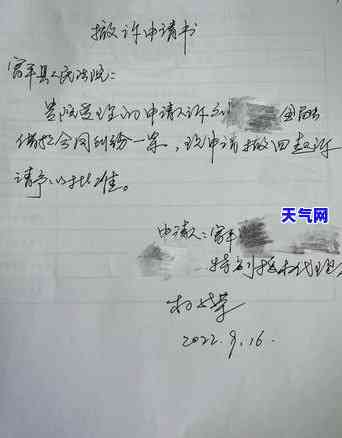 撤诉申请书
富平县人民法院:
贵院受理的申请人诉
借款合同纠纷一案,现申请撤回起诉
请予以批准。
天气网
申请人:富平
特别授权代理
2022.9.16.